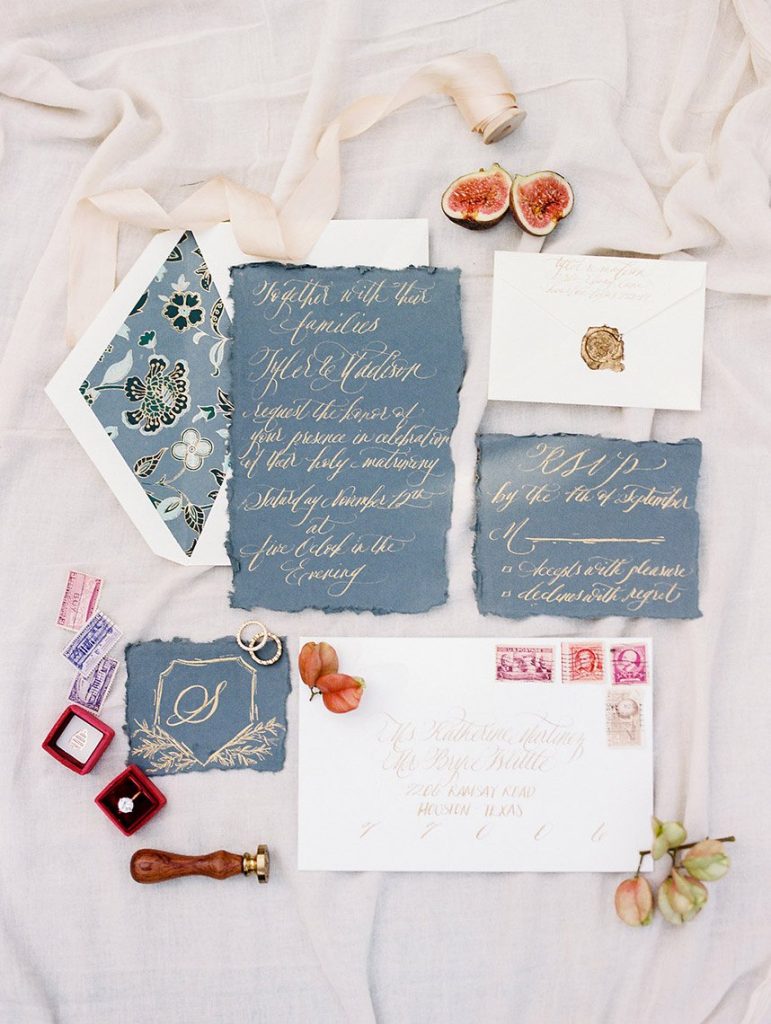 Together with their
families
Tyler & Madison
request the honor of
your presence in celebration
of their holy matrimony
Saturday November 12th
at
five O'clock in the
Evening
RSVP
by the 4th of September
M
Accepts with pleasure
declines with regret
S
U.S. POSTAGE
Ms Katherine
Mr
2206 RAMSAY ROAD
HOUSTON - TEXAS
7 7 0 0 6